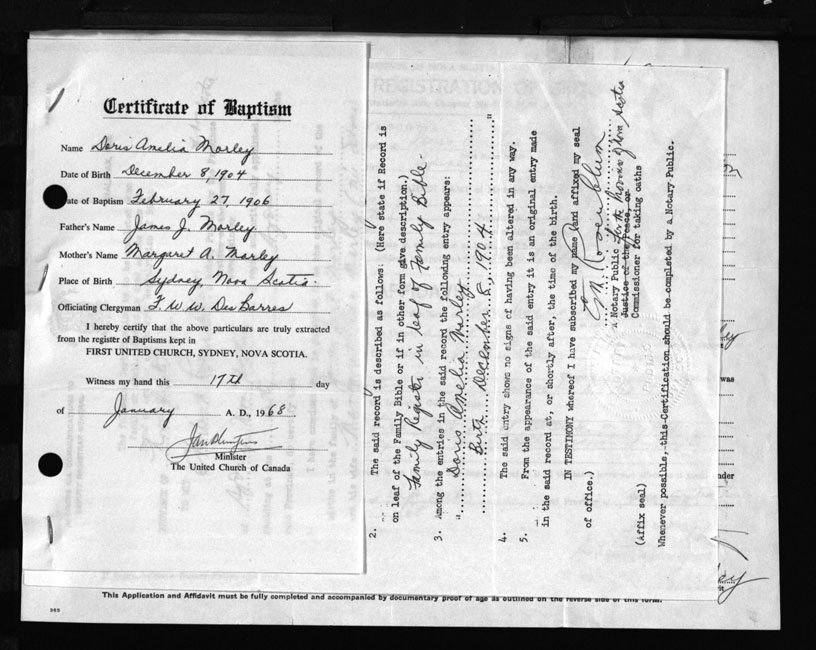 Certificate of Baptism
Name Doris Amelia Morley
Date of Birth December 8, 1904
ate of Baptism February 27, 1906
Father's Name James J. Morley
Mother's Name Margaret A. Morley
Place of Birth Sydney, Nova Scotia.
Officiating Clergyman F. W. W. DesBarres
I hereby certify that the above particulars are truly extracted
from the register of Baptisms kept in
FIRST UNITED CHURCH, SYDNEY, NOVA SCOTIA.
Witness my hand this 17th day
of January A. D., 1968.
Minister
The United Church of Canada
2. The said record is described as follows: (Here state if Record is
on leaf of the Family Bible or if in other form give description.)
Family Register in leaf of Family Bible.
3. Among the entries in the said record the following entry appears:
" Doris Amelia Morley
Birth December 8, 1904 "
4. The said entry shows no signs of having been altered in any way.
5. From the appearance of the said entry it is an original entry made
in the said record at, or shortly after, the time of the birth.
IN TESTIMONY whereof I have subscribed my name and affixed my seal
of office.)
Rosenblum
A Notary Public in the Province of Nova Scotia
Justice of the Peace, or
Commissioner for taking oaths
(Affix seal)
Whenever possible, this Certification should be completed by a Notary Public.
was
nder
This Application and Affidavit must be fully completed and accompanied by documentary proof of age as outlined on the reverse side of this form.